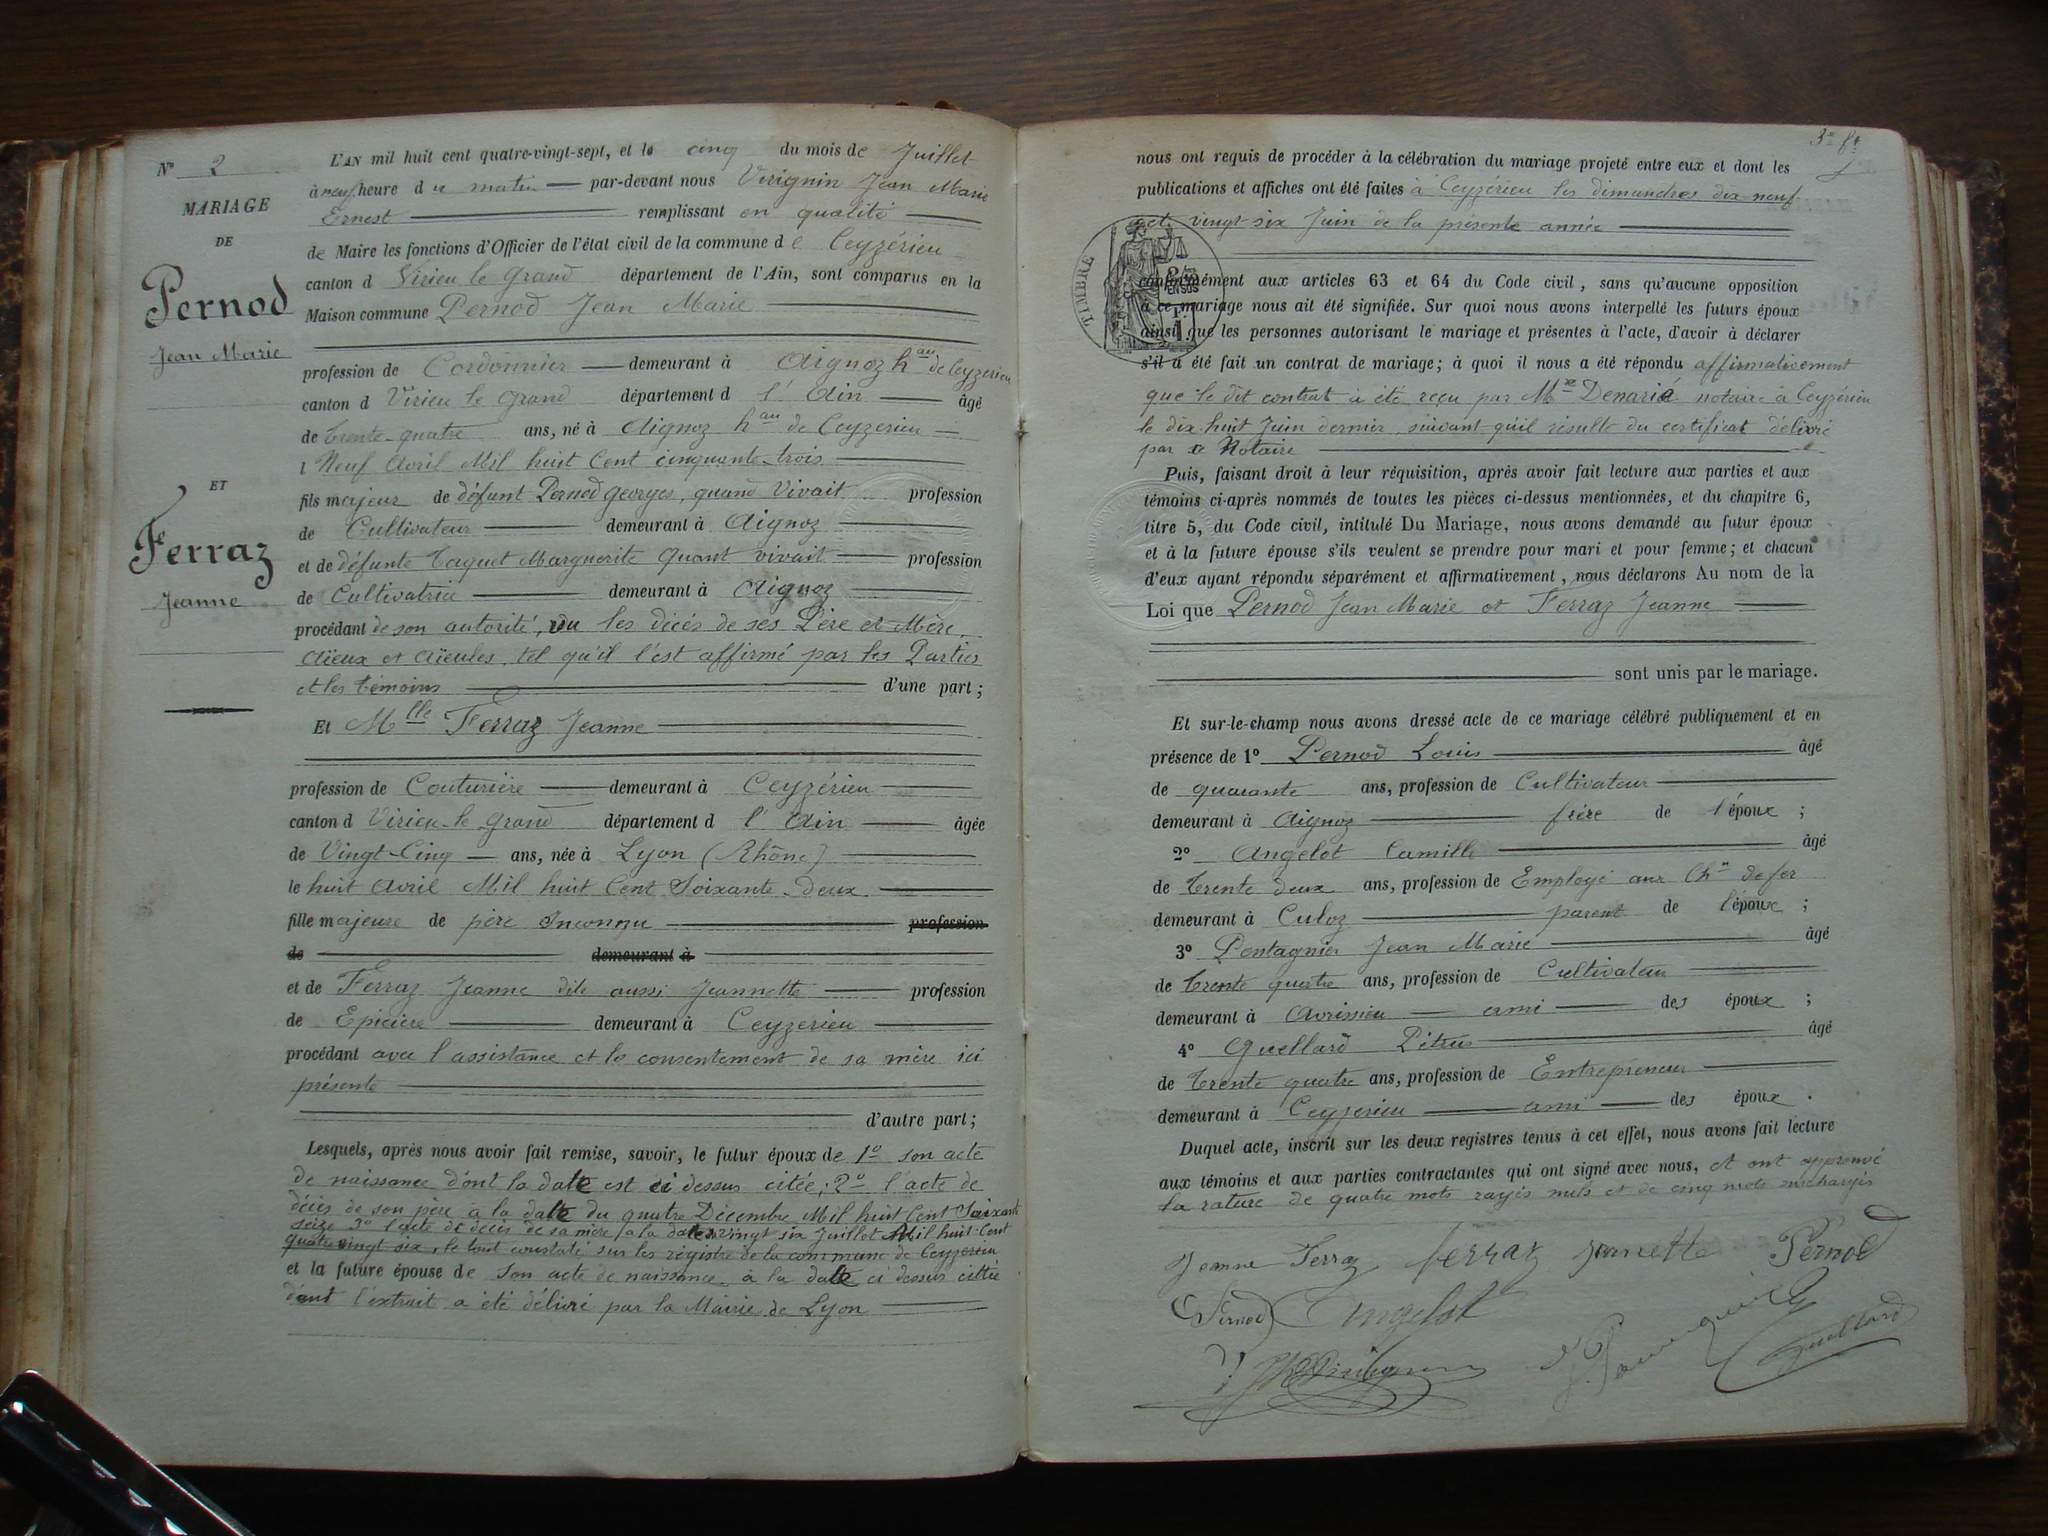 N° 2
MARIAGE
DE
Pernod
Jean Marie
ET
Ferraz
Jeanne
L'AN mil huit cent quatre-vingt-sept, et le cinq du mois de Juillet
à neuf heure du matin par-devant nous Virignin Jean Marie
Ernest remplissant en qualité
de Maire les fonctions d'Officier de l'état civil de la commune de Ceyzérieu
canton d Virieu le Grand département de l'Ain, sont comparus en la
Maison commune Pernod Jean Marie
profession de Cordonnier demeurant à Aignoz hau de Ceyzerieu
canton d Virieu le Grand département d l'Ain âgé
de trente-quatre ans, né à Aignoz hau de Ceyzerieu
l Neuf Avril Mil huit Cent cinquante-trois
fils majeur de défunt Pernod georges, quand Vivait profession
de Cultivateur demeurant à Aignoz
et de défunte Taquet Marguerite Quant vivait profession
de Cultivatrice demeurant à Aignoz
procédant de son autorité, vu les décés de ses Père et Mère,
Aïeux et Aïeules, tel qu'il l'est affirmé par les Parties
et les témoins d'une part;
Et Mlle Ferraz Jeanne
profession de Couturière demeurant à Ceyzérieu
canton d Virieu-le-Grand département d l'Ain âgée
de Vingt-Cinq ans, née à Lyon (Rhône)
le huit Avril Mil huit Cent Soixante-deux
fille majeure de père Inconnu profession
de demeurant à
et de Ferraz Jeanne dite aussi Jeannette profession
de Epicière demeurant à Ceyzerieu
procédant avec l'assistance et le consentement de sa mère ici
présente
d'autre part;
Lesquels, après nous avoir fait remise, savoir, le futur époux de 1° son acte
de naissance dont la date est ci dessus citée; 2° l'acte de
décès de son père à la date du quatre Décembre Mil huit Cent Soixante
seize 3° l'acte de décès de sa mère, à la date vingt six Juillet Mil huit-Cent
quatre vingt six, le tout constaté sur les régistre de la commune de Ceyzerieu
et la future épouse de son acte de naissance à la date ci dessus cittée
dont l'éxtrait a été délivré par la Mairie de Lyon
nous ont requis de procéder à la célébration du mariage projeté entre eux et dont les
publications et affiches ont été faites à Ceyzérieu les dimanches dix-neuf
et vingt-six Juin de la présente année
TIMBRE
conformément aux articles 63 et 64 du Code civil, sans qu'aucune opposition
à ce mariage nous ait été signifiée. Sur quoi nous avons interpellé les futurs époux
ainsi que les personnes autorisant le mariage et présentes à l'acte, d'avoir à déclarer
s'il a été fait un contrat de mariage; à quoi il nous a été répondu affirmativement
que le dit contrat a été reçu par Me Denarié notaire à Ceyzérieu
le dix-huit Juin dernier, suivant qu'il résulte du certificat délivré
par ce Notaire
Puis, faisant droit à leur réquisition, après avoir fait lecture aux parties et aux
témoins ci-après nommés de toutes les pièces ci-dessus mentionnées, et du chapitre 6,
titre 5, du Code civil, intitulé Du Mariage, nous avons demandé au futur époux
et à la future épouse s'ils veulent se prendre pour mari et pour femme; et chacun
d'eux ayant répondu séparément et affirmativement, nous déclarons Au nom de la
Loi que Pernod Jean Marie et Ferraz Jeanne
sont unis par le mariage.
Et sur-le-champ nous avons dressé acte de ce mariage célébré publiquement et en
présence de 1° Pernod Louis âgé
de quarante ans, profession de Cultivateur
demeurant à Aignoz frère de l'époux;
2° Angelot Camille âgé
de trente deux ans, profession de Employé aux Ch<sup>in</sup> de fer
demeurant à Culoz parent de l'époux;
3° Pontagnier Jean Marie âgé
de trente quatre ans, profession de Cultivateur
demeurant à Avrissieu ami des époux;
4° Guellard Pitrus âgé
de trente quatre ans, profession de Entrepreneur
demeurant à Ceyzerieu ami des époux.
Duquel acte, inscrit sur les deux registres tenus à cet effet, nous avons fait lecture
aux témoins et aux parties contractantes qui ont signé avec nous, et ont approuvé
la rature de quatre mots rayés nuls et de cinq mots surchargés
Jeanne Ferraz ferraz janette Pernod
Pernod Angelot
Guellard